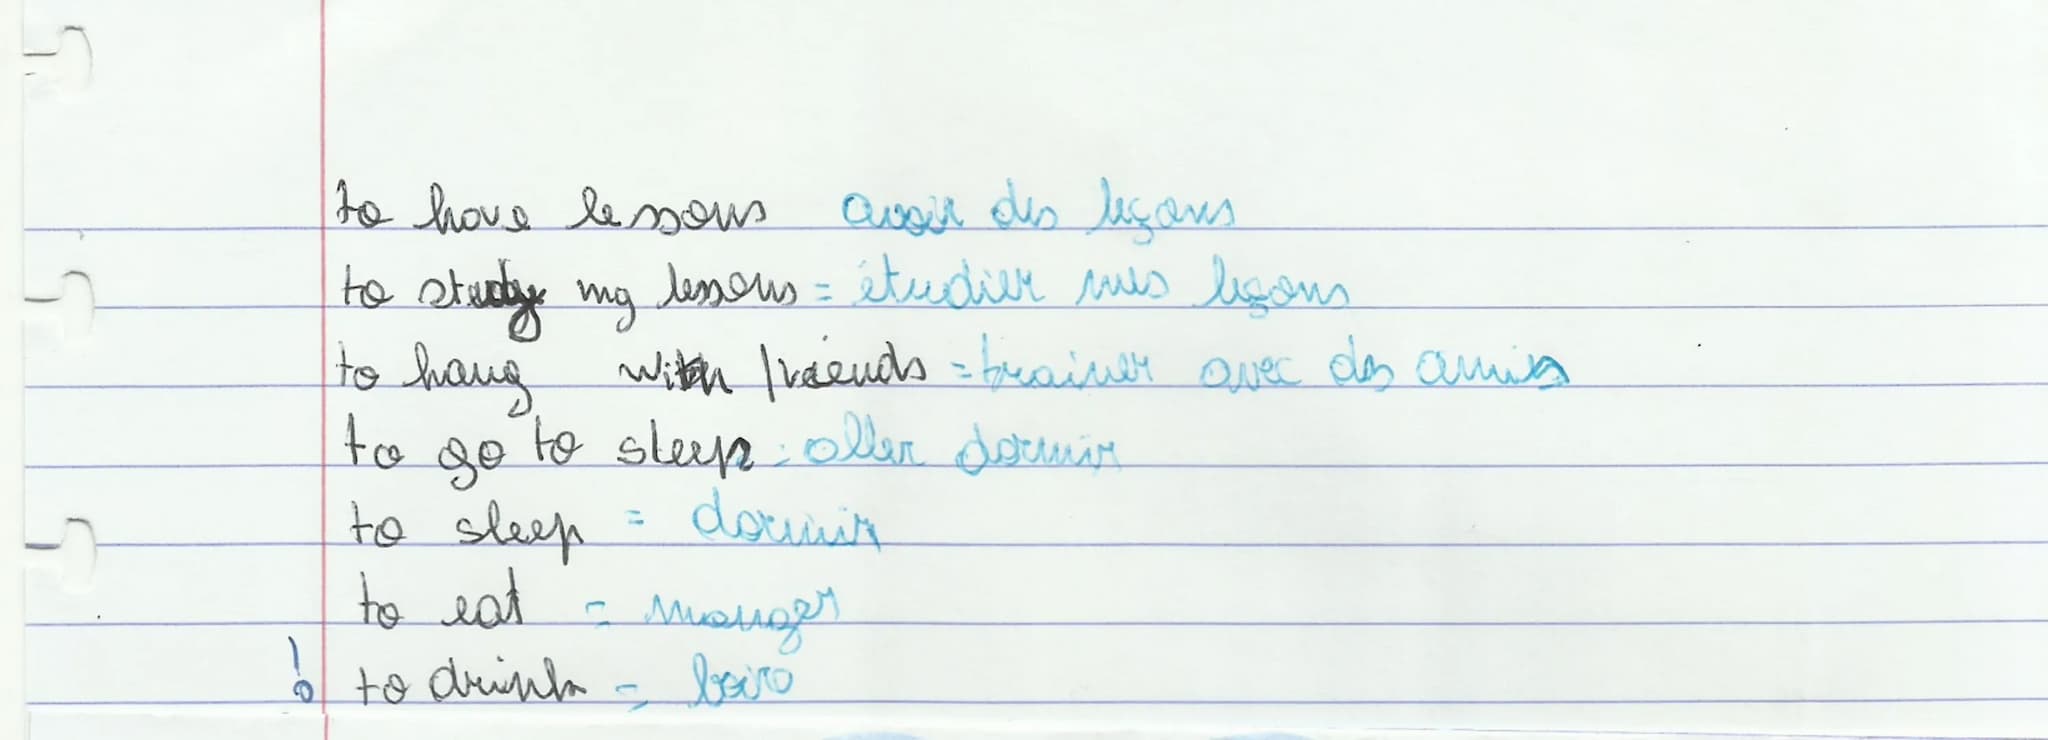 to have lessons avoir des leçons
to study my lessons = étudier mes leçons
to hang with friends = trainer avec des amis
to go to sleep = aller dormir
to sleep = dormir
to eat = manger
! to drink = boire